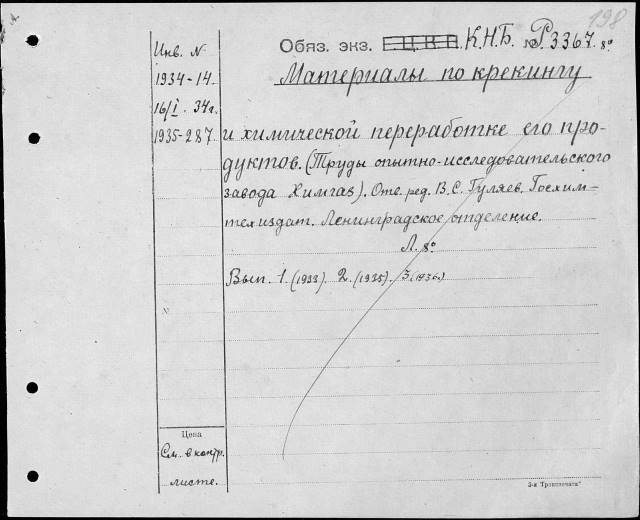 198
Инв. N
1934-14.
16/I. 34г.
1935-287
Обяз. экз. Е.Ц.К.Б. К.Н.Б. № Р3367. 8°
Материалы по крекингу
и химической переработке его про-
дуктов. (Труды опытно-исследовательского
завода Химгаз). Отв. ред. В.С. Гуляев. Госхим-
техиздат. Ленинградское отделение.
Л. 8°
Вып. 1. (1933). 2. (1935). 3. (1936.)
N
Цена
См. в контр.
листе.
3-я "Транспечати"